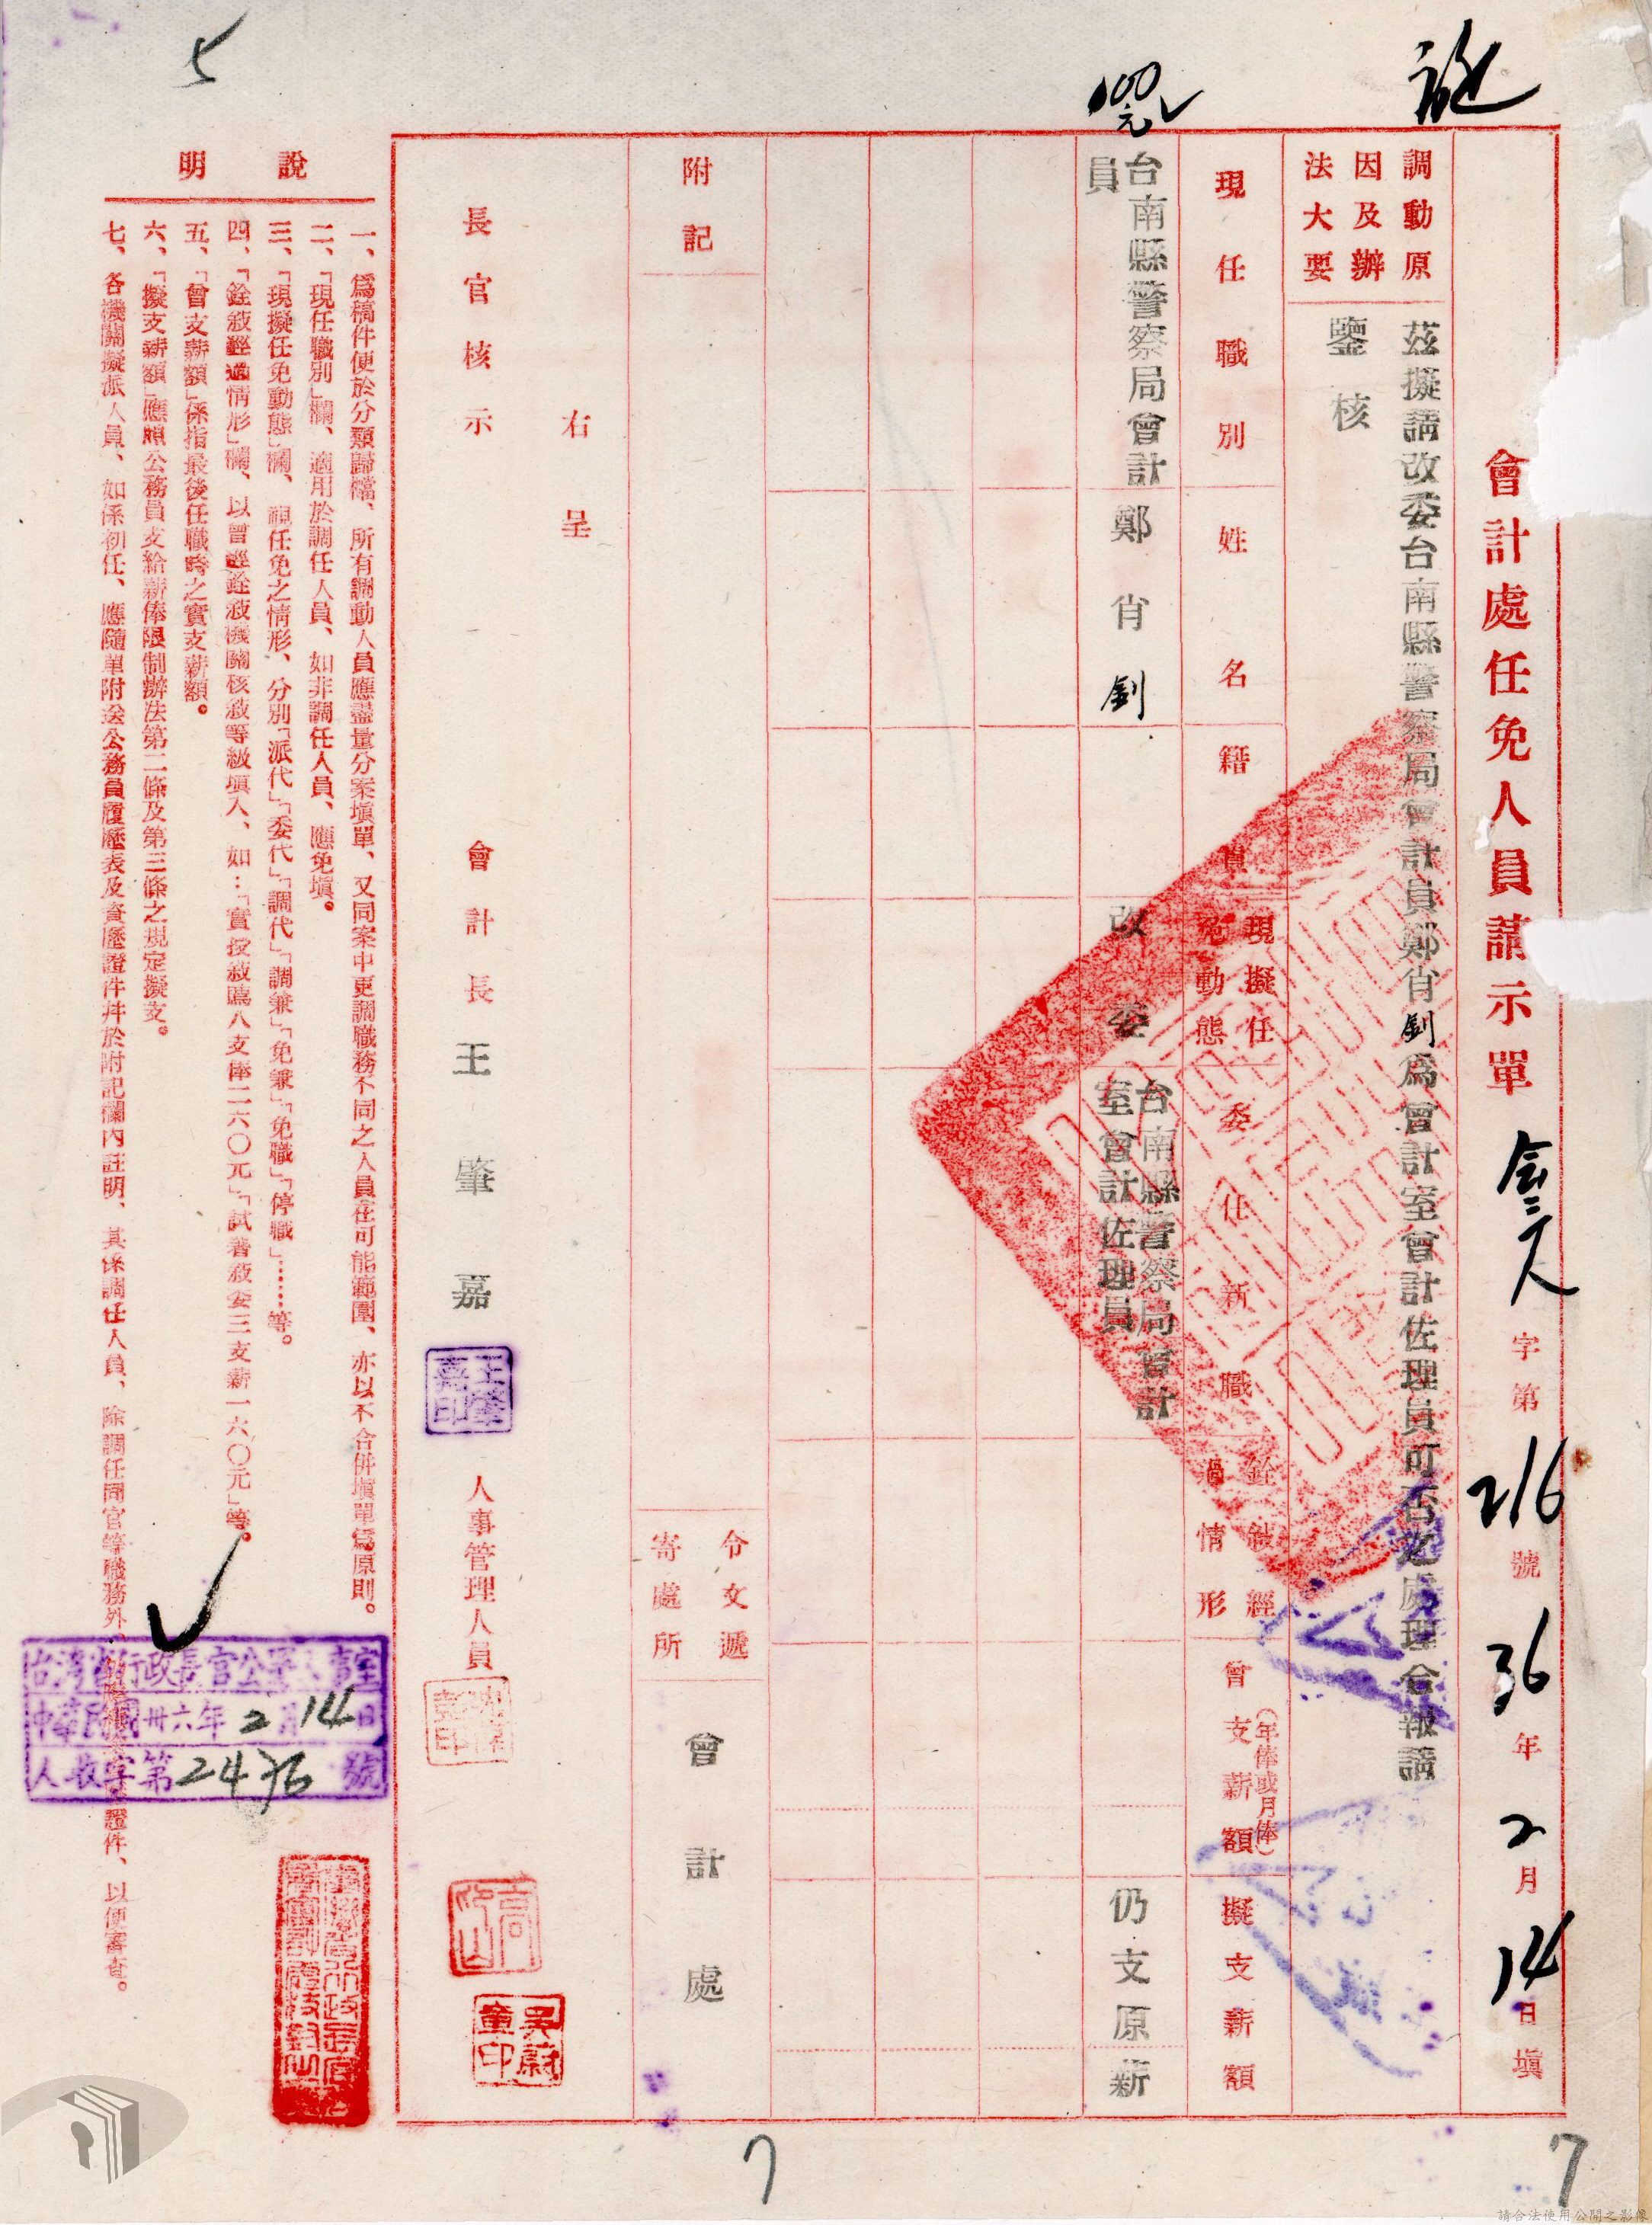 會計處任免人員請示單
字第216號36年2月14日填
調動原因及辦法大要
茲擬請改委台南縣警察局會計員鄭肖釗為會計室會計佐理員可否之處理合報請
鑒核
現任職別
姓名
籍貫
現擬任免動態
委任新職
銓敍經過情形
曾支薪額(年俸或月俸)
擬支薪額
100元
台南縣警察局會計員
鄭肖釗
改委
台南縣警察局會計室會計佐理員
仍支原薪
附記
令文遞寄處所
會計處
右呈
長官核示
會計長王肇嘉
王肇嘉印
人事管理人員
說明
一、為稿件便於分類歸檔、所有調動人員應盡量分案填單、又同案中更調職務不同之人員在可能範圍、亦以不合併填單為原則。
二、「現任職別」欄、適用於調任人員、如非調任人員、應免填。
三、「現擬任免動態」欄、視任免之情形、分別「派代」「委代」「調代」「調兼」「免兼」「免職」「停職」……等。
四、「銓敍經過情形」欄、以曾經銓敍機關核敍等級填入、如：「實授敍薦八支俸二六〇元」「試署敍委三支薪一六〇元」等。
五、「曾支薪額」係指最後任職時之實支薪額。
六、「擬支薪額」應照公務員支給薪俸限制辦法第二條及第三條之規定擬支。
七、各機關擬派人員、如係初任、應隨單附送公務員履歷表及資歷證件幷於附記欄內註明、其係調任人員、除調任同官等職務外、證件、以便審查。
台灣省行政長官公署人事室
中華民國卅六年2月14日
人收字第2476號
5
7
7
請合法使用公開之影像